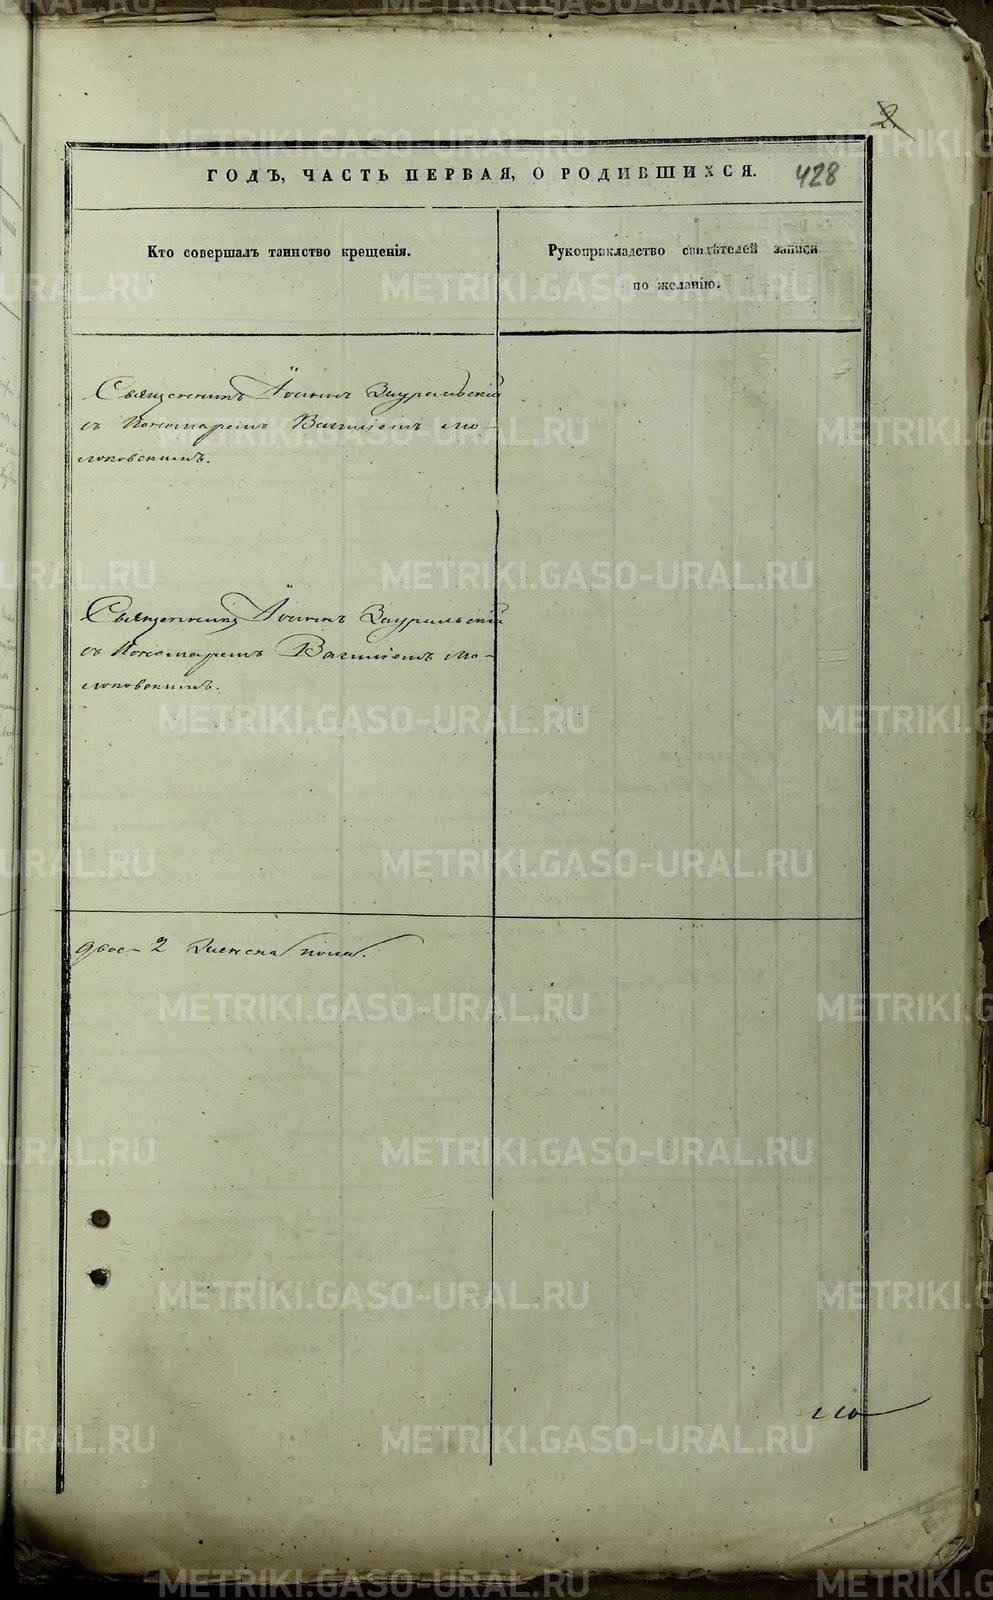 2.
428
ГОДЪ, ЧАСТЬ ПЕРВАЯ, О РОДИВШИХСЯ.
Кто совершалъ таинство крещенія.
Рукоприкладство свидѣтелей записи
по желанію.
Священникъ Іоаннъ Зауральскій
съ Пономаремъ Василіемъ Мо-
локовскимъ.
Священникъ Іоаннъ Зауральскій
съ Пономаремъ Василіемъ Мо-
локовскимъ.
двое - 2 Женска пола.
METRIKI.GASO-URAL.RU